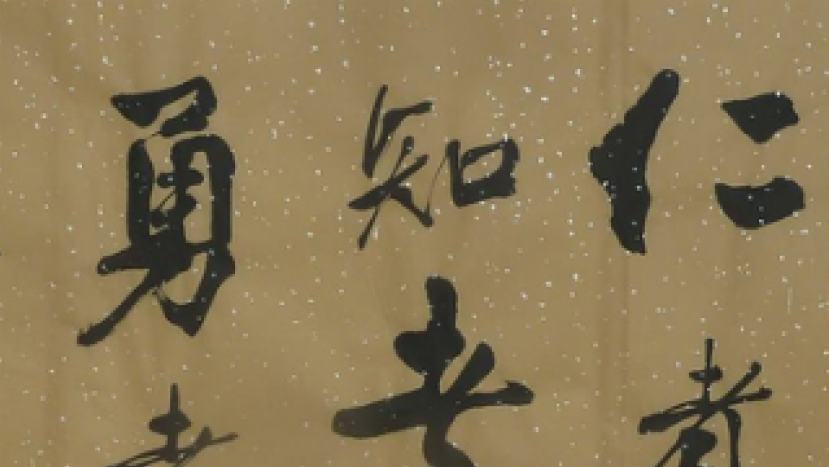 仁者
知者
勇者